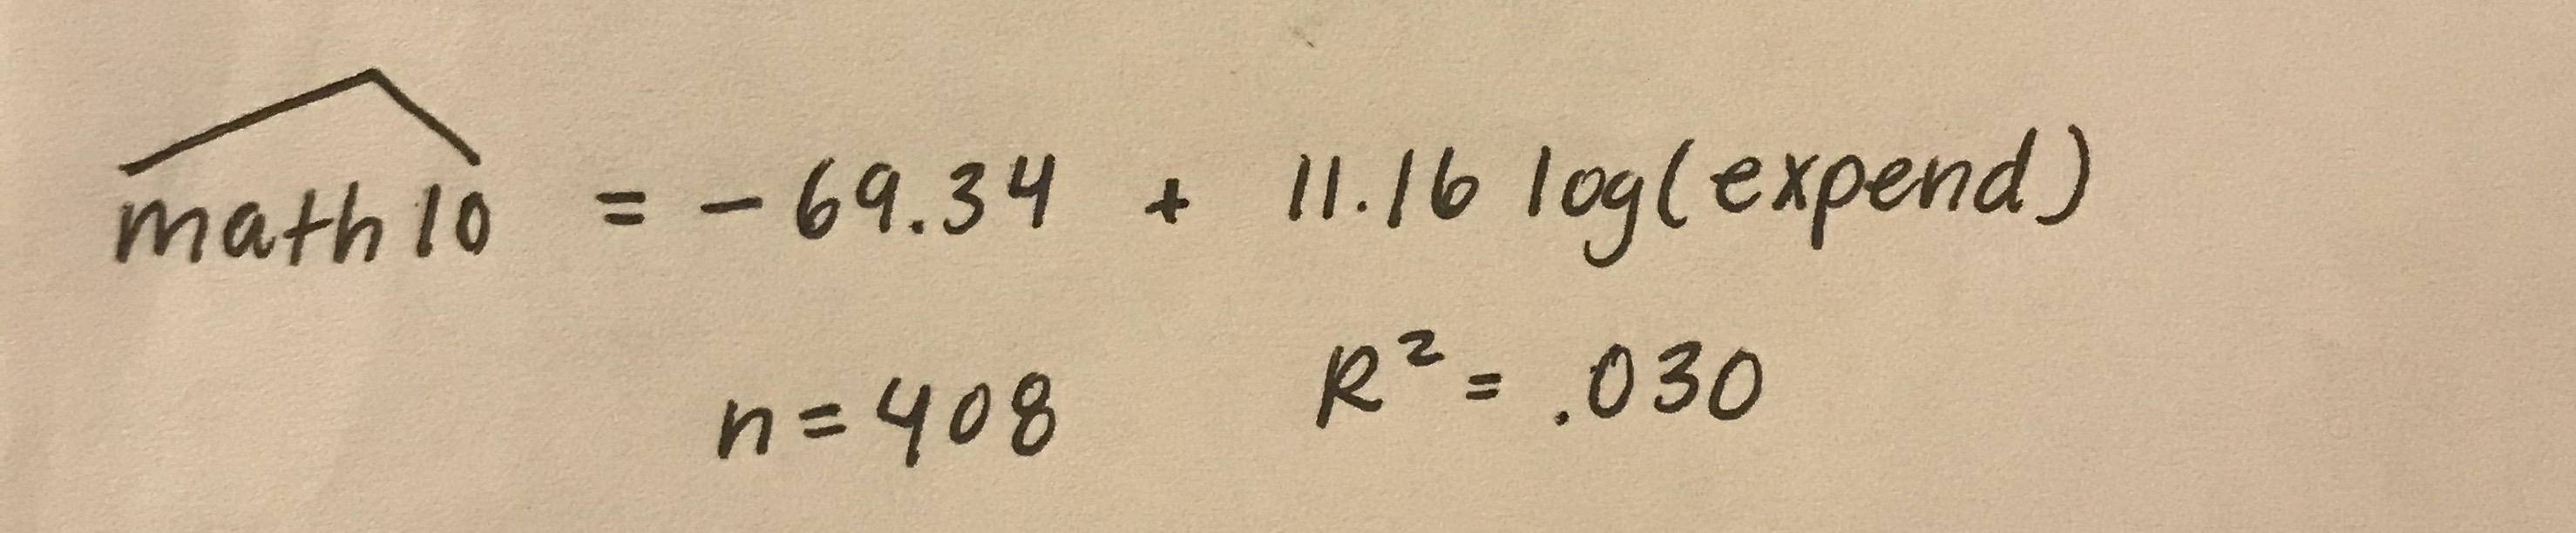 math10 = - 69.34 + 11.16 log(expend)
n = 408 R² = .030